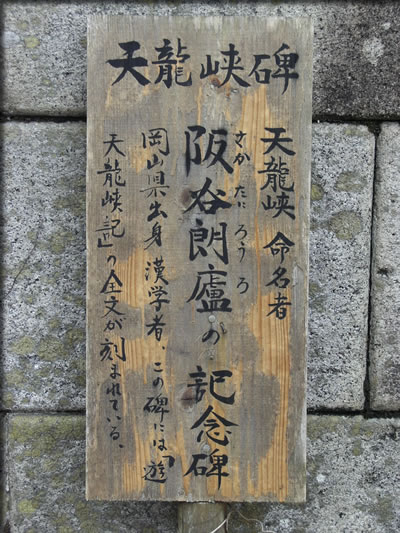 天龍峡碑
天龍峡 命名者
さか たに ろう ろ
阪谷朗廬の 記念碑
岡山県出身 漢学者、この碑には「遊
天龍峡記」の全文が刻まれている、